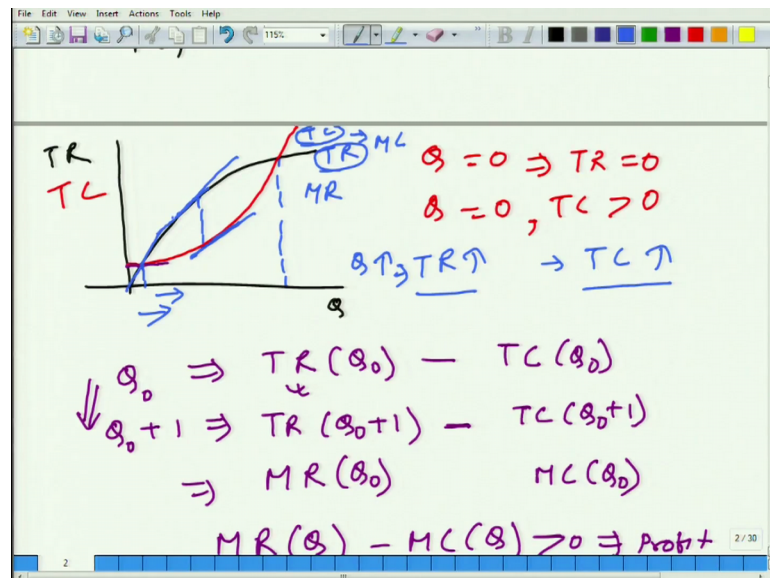 File Edit View Insert Actions Tools Help
115%
B I
TR
TC
TC → MC
TR
MR
Q
Q = 0 ⇒ TR = 0
Q = 0, TC > 0
Q↑ ⇒ TR↑ → TC↑
Q₀ ⇒ TR(Q₀) - TC(Q₀)
Q₀+1 ⇒ TR(Q₀+1) - TC(Q₀+1)
⇒ MR(Q₀) MC(Q₀)
MR(Q) - MC(Q) > 0 ⇒ Profit
2 / 30
2